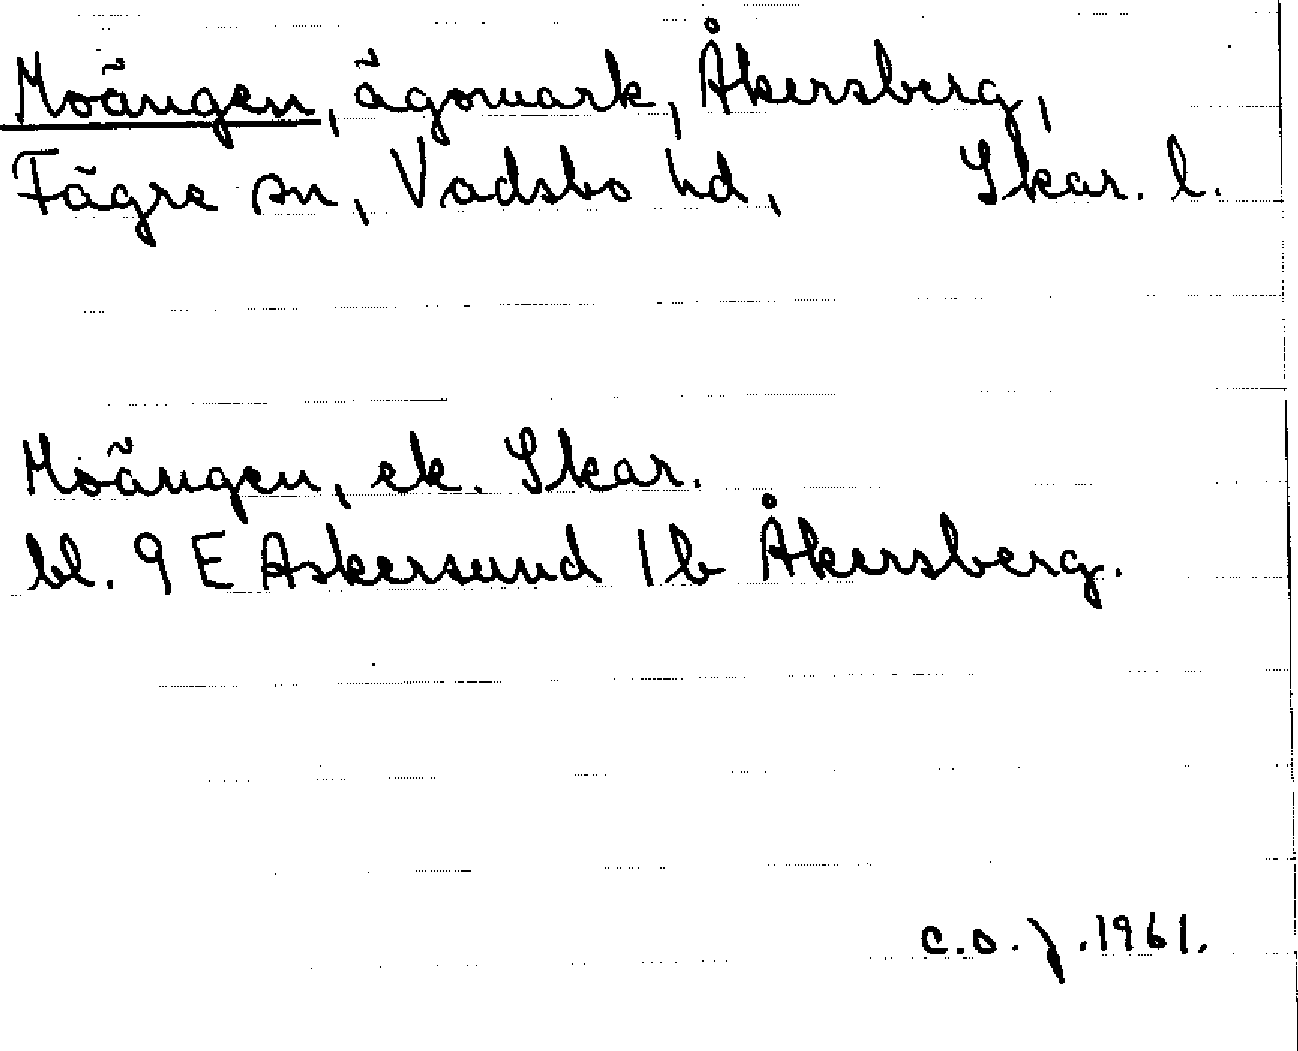 Moängen, ägomark, Åkersberg,
Fägre sn, Vadsbo hd, Skar. l.
Moängen, ek. Skar.
bl. 9 E Askersund 1 b Åkersberg.
C.O.J. 1961.